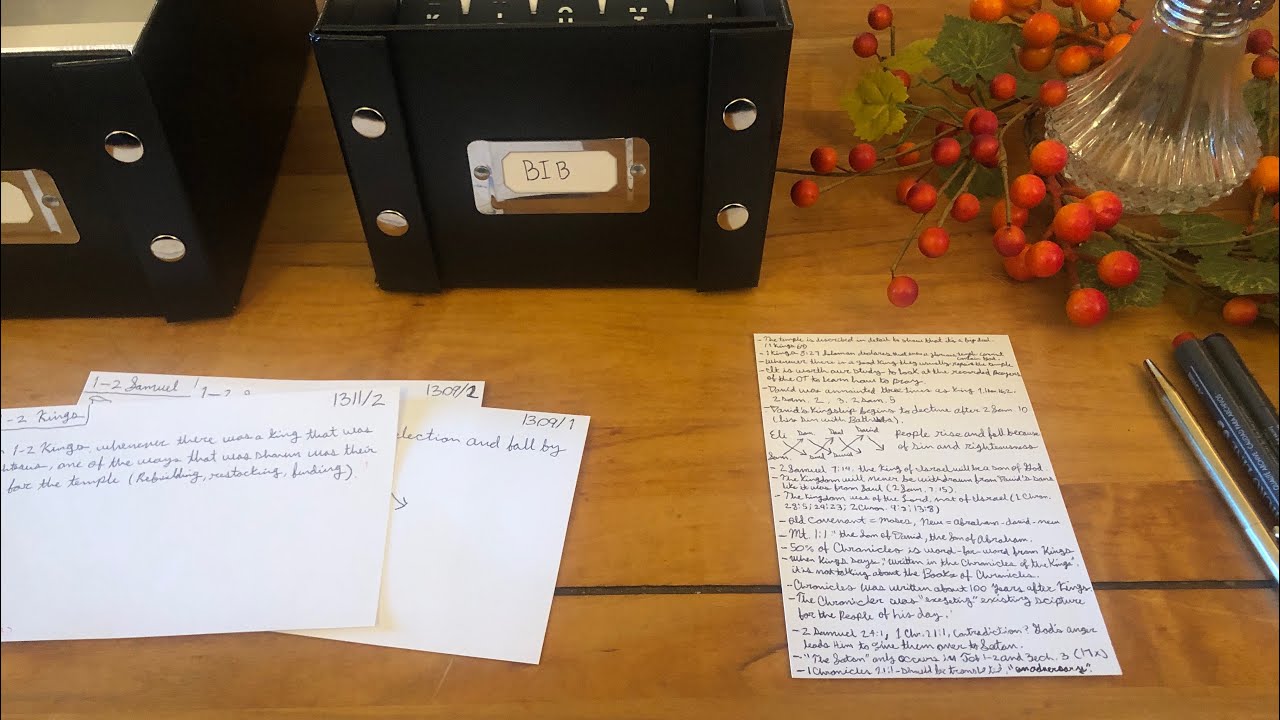 BIB
1-2 Samuel
1309/2
1-2 Kings
1311/2
1-2 Kings whenever there was a king that was
one of the ways that was shown was their
for the temple (Rebuilding, restocking, finding).
1309/1
election and fall by
- The temple is described in detail to show that it's a big deal.
1 Kings 6
- 1 Kings 8:27 Solomon declares that even a glorious temple cannot
contain God.
- Whenever there is a good king they usually repair the temple
- It is worth our study to look at the recorded prayers
of the OT to learn how to pray.
- David was anointed three times as King
2 Sam. 2, 2 Sam. 5
- David's Kingship begins to decline after 2 Sam 10
(his sin with Bathsheba).
Eli Sam Saul David
People rise and fall because
of sin and righteousness
Saul David
- 2 Samuel 7:14, the King of Israel will be a son of God.
- The Kingdom will never be withdrawn from David's
like it was from Saul (2 Sam. 7:15).
- The Kingdom was of the Lord, not of Israel (1 Chron.
28:5; 29:23; 2 Chron. 9:8; 13:8)
- Old Covenant = Moses, New = Abraham-david-new
- Mt. 1:1 "the Son of David, the Son of Abraham.
- 50% of Chronicles is word-for-word from Kings
- When Kings says, "written in the Chronicles of the Kings".
it is not talking about the Books of Chronicles.
- Chronicles was written about 100 years after Kings
- The Chronicler was "exegeting" existing scripture
for the people of his day.
- 2 Samuel 24:1, 1 Chr. 21:1, Contradiction? God's anger
leads Him to give them over to Satan.
- "The Satan" only occurs in Job 1-2 and Zech. 3 (17x)
- 1 Chronicles 21:1 - should be translated, "an adversary".